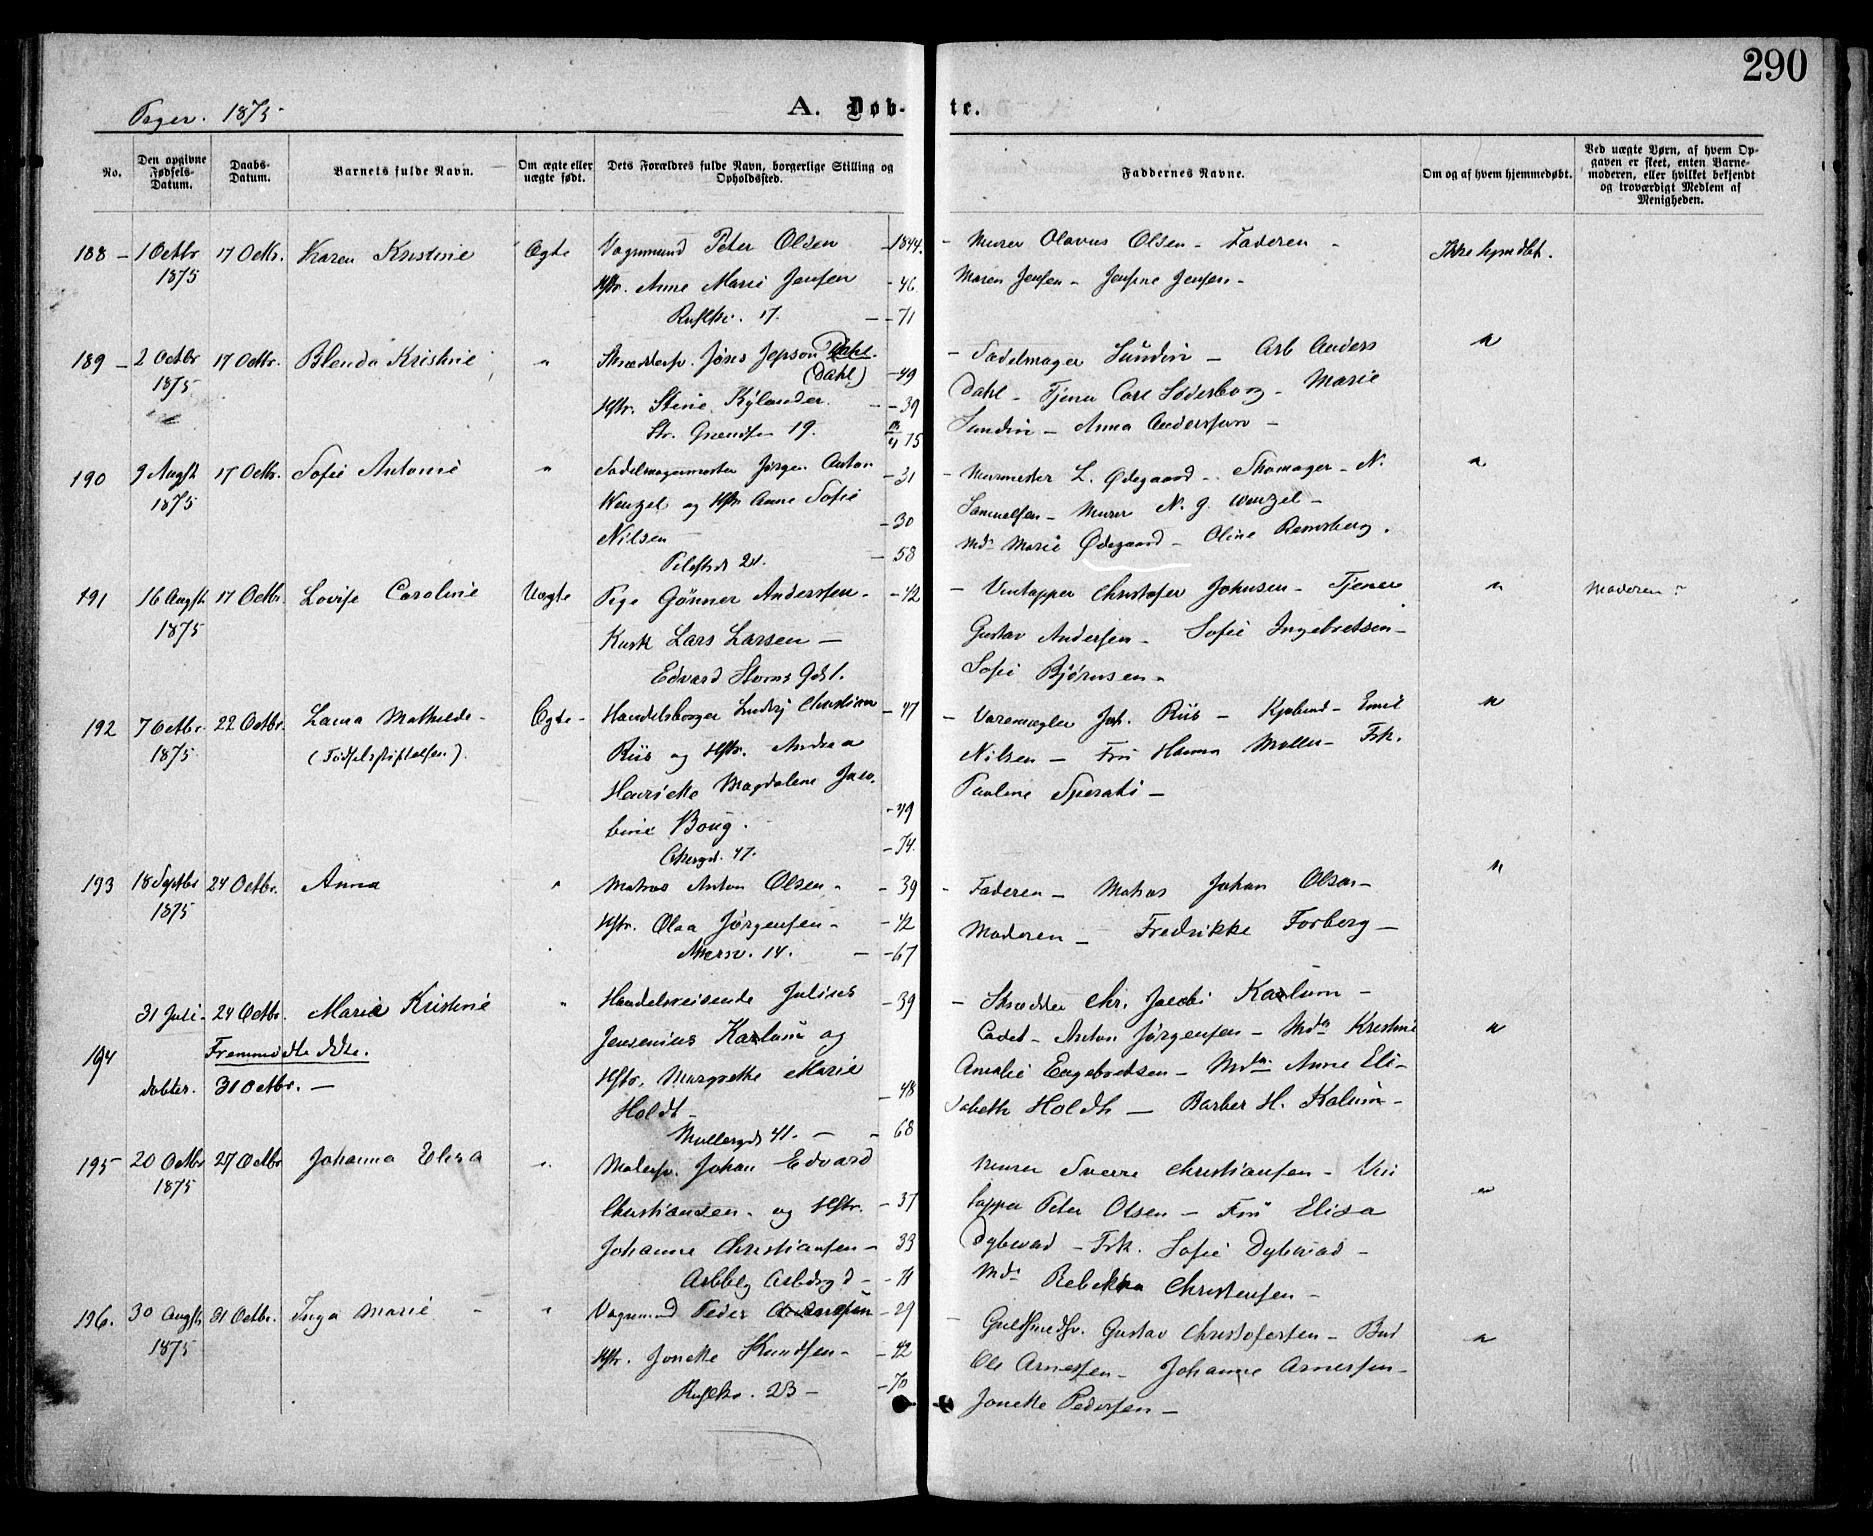 290
Piger. 1875
A. Døb-te.
No.
Den opgivne Fødsels-Datum.
Daabs-Datum.
Barnets fulde Navn.
Om ægte eller uægte født.
Dets Forældres fulde Navn, borgerlige Stilling og Opholdssted.
Faddernes Navne.
Om og af hvem hjemmedøbt.
Ved uægte Børn, af hvem Opgaven er skeet, enten Barnemoderen, eller hvilket bekjendt og troværdigt Medlem af Menigheden.
188 – 1 Octbr 17 Octbr. Karen Kristine Ægte Vognmand Peter Olsen – 1844. – Murer Olavus Olsen – Faderen –
1875 Hstr. Anne Marie Jensen – 46 Maren Jensen – Jensine Jensen –
17. – 71
189 – 2 Octbr 17 Octbr. Blenda Kristine " Skræddersv. Jöns Jepson Dahl. – Sadelmager Sundin – Arb Anders
1875 (Dahl) – 49 Dahl – Tjener Carl Söderborg – Marie
Hstr. Stine Kylander – 39 Sundin – Anna Andersson –
Str. Grændsen 19. 75
190 9 Augst 17 Octbr. Sofie Antonie " Sadelmagermester Jørgen Anton – 31 – Murmester L. Ødegaard – Skomager N.
1875 Wenzel og Hstr Anne Sofie Samuelsen – Murer N. G. Wenzel –
Nilsen – 30 Md. Marie Ødegaard – Oline Remsberg.
Pilestrdt 24. – 58
191 16 Augst. 17 Octbr. Lovise Caroline Uægte Pige Gönner Anderssen – – 42 – Vintapper Christofer Johnsen – Tjener " Moderen –
1875 Kusk Lars Larsen – Gustav Andersen – Sofie Ingebretsen –
Edvard Storms Gd 1. Sofie Bjørnsen –
192 7 Octbr. 22 Octbr. Laura Mathilde – Ægte – Handelsborger Ludvig Christian – 47 – Varemægler Joh. Riis – Kjøbmd – Emil "
1875 (Fødselsstiftelsen). Riis og Hstr. Andrea Nilsen – Fru Hanna Møller – Frk.
Henriette Magdalene Jaco- Pauline Sperati –
bine Boug. – 49
47. – 74.
193 18 Septbr 24 Octbr. Anna " Matros Anton Olsen – – 39 – Faderen – Matros Johan Olsen – "
1875 Hstr. Olea Jørgensen – – 42 Moderen – Fredrikke Forberg –
Akersv. 14. – – 67
31 Juli – 24 Octbr. Marie Kristine " Handelsreisende Julius – 39 – Skrædder Chr. Jacobi Karlum –
Fremmødte ikke. Jensenius Karlum og Cadet – Anton Jørgensen – Mdm Kristine "
194 Hstr. Margrethe Marie Amalie Engebretsen – Mdm Anne Eli-
døbter. 31 Octbr. – Holdt – – 48 sabeth Holdth – Barber H. Kalum –
Møllergdt 41. – – 68
195 20 Octbr 27 Octbr Johanna Elisa " Malersv. Johan Edvard Murer Sverre Christiansen – Vin
1875 Christiansen – og Hstr. – 37 tapper Peter Olsen – Fru Elisa "
Johanne Christiansen – 33 Dybwad – Frk. Sofie Dybwad –
– 71 Md. Rebekka Christensen –
196. 30 Augst. 31 Octbr. Inga Marie – " Vognmand Peder Andersen – 29 – Guldsmedsv. Gustav Christofersen – Bud "
1875 Hstr. Jonette Knudsen – – 42 Ole Arnessen – Johanne Arnessen –
23 – – 70 Jonette Pedersen –